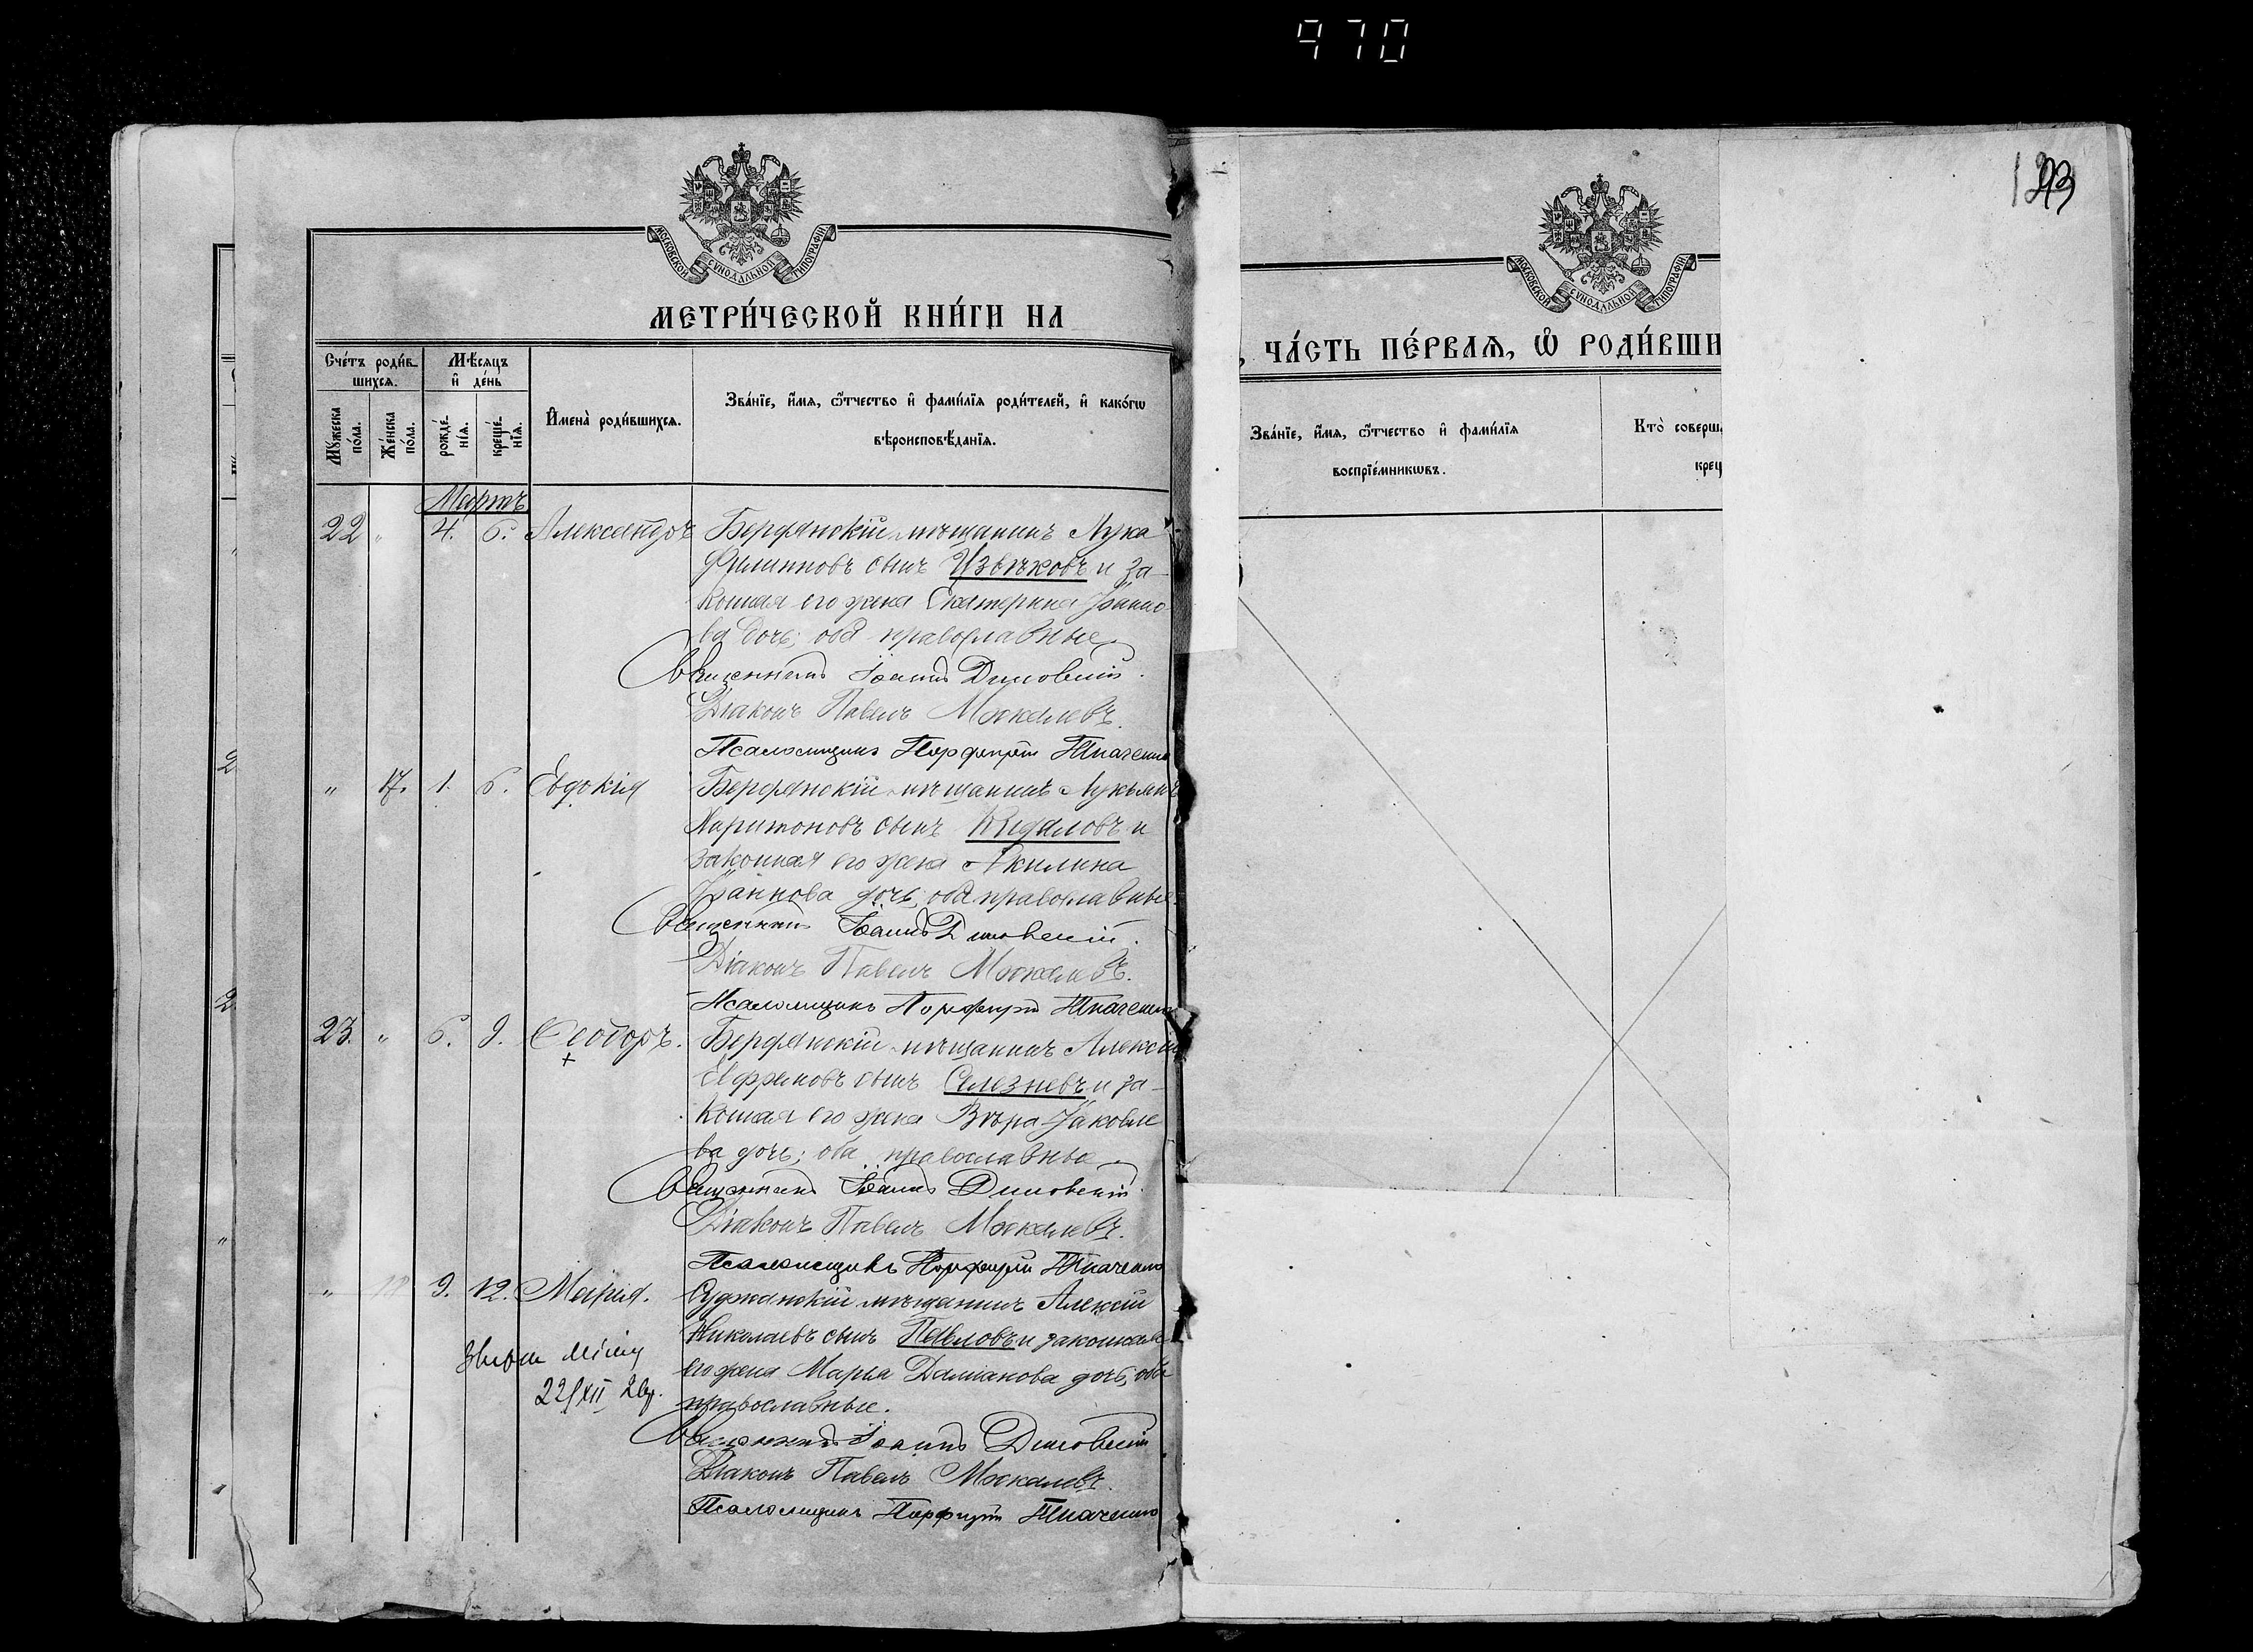 970
123
МОСКОВСКОЙ СУНОДАЛЬНОЙ ТИПОГРАФІИ
МЕТРИ́ЧЕСКОЙ КНИ́ГИ НА
Сче́тъ роди́в-
шихсѧ.
Мѣ́сѧцъ
и҆ де́нь
Мꙋ́жеска
по́ла.
Же́нска
по́ла.
рожде́-
нїѧ.
креще́-
нїѧ.
И҆мена̀ роди́вшихсѧ.
Зва́нїе, и҆́мѧ, ѻ҆́тчество и҆ фами́лїѧ роди́телей, и҆ како́гѡ
вѣроисповѣ́данїѧ.
Мартъ
22 " 4. 6. Александръ Бердянскій мѣщанинъ Лука
Филипповъ сынъ Извѣковъ и за-
конная его жена Екатерина Іоанно-
ва дочь; оба православные.
Священникъ Іоаннъ Димовскій.
Діаконъ Павелъ Москалевъ.
Псаломщикъ Порфирій Ткаченко
" 17. 1. 6. Евдокія Бердянскій мѣщанинъ Лукьянъ
Харитоновъ сынъ Кидаловъ и
законная его жена Акилина
Іоаннова дочь; оба православные.
Священникъ Іоаннъ Димовскій.
Діаконъ Павелъ Москалевъ.
Псаломщикъ Порфирій Ткаченко
23. " 6. 9. Ѳеодоръ. Бердянскій мѣщанинъ Алексій
Ефремовъ сынъ Селезневъ и за-
конная его жена Вѣра Іаковле-
ва дочь; оба православные.
Священникъ Іоаннъ Димовскій.
Діаконъ Павелъ Москалевъ.
Псаломщикъ Порфирій Ткаченко
" 18 9. 12. Марія. Суджанскій мѣщанинъ Алексій
Николаевъ сынъ Павловъ и законная
его жена Марья Даміанова дочь; оба
православные.
22/XII
Священникъ Іоаннъ Димовскій
Діаконъ Павелъ Москалевъ.
Псаломщикъ Порфирій Ткаченко
МОСКОВСКОЙ СУНОДАЛЬНОЙ ТИПОГРАФІИ
, ЧА́СТЬ ПЕ́РВАѦ, Ѽ РОДИ́ВШИ
Зва́нїе, и҆́мѧ, ѻ҆́тчество и҆ фами́лїѧ
воспрїе́мникѡвъ.
Кто̀ соверш
крещ